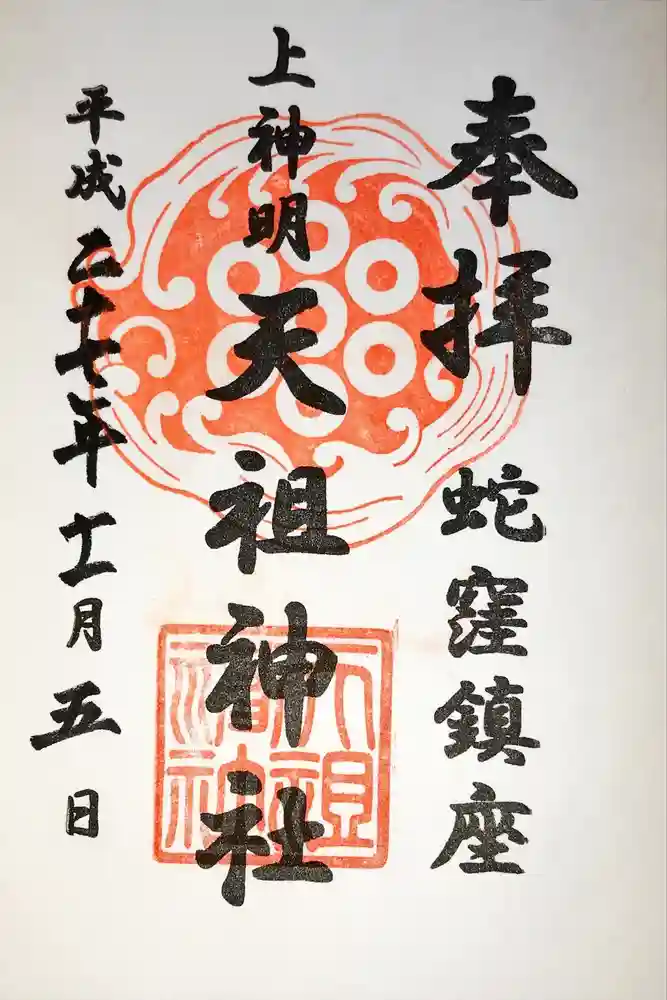 奉拝 蛇窪鎮座
上神明天祖神社
平成二十七年十一月五日